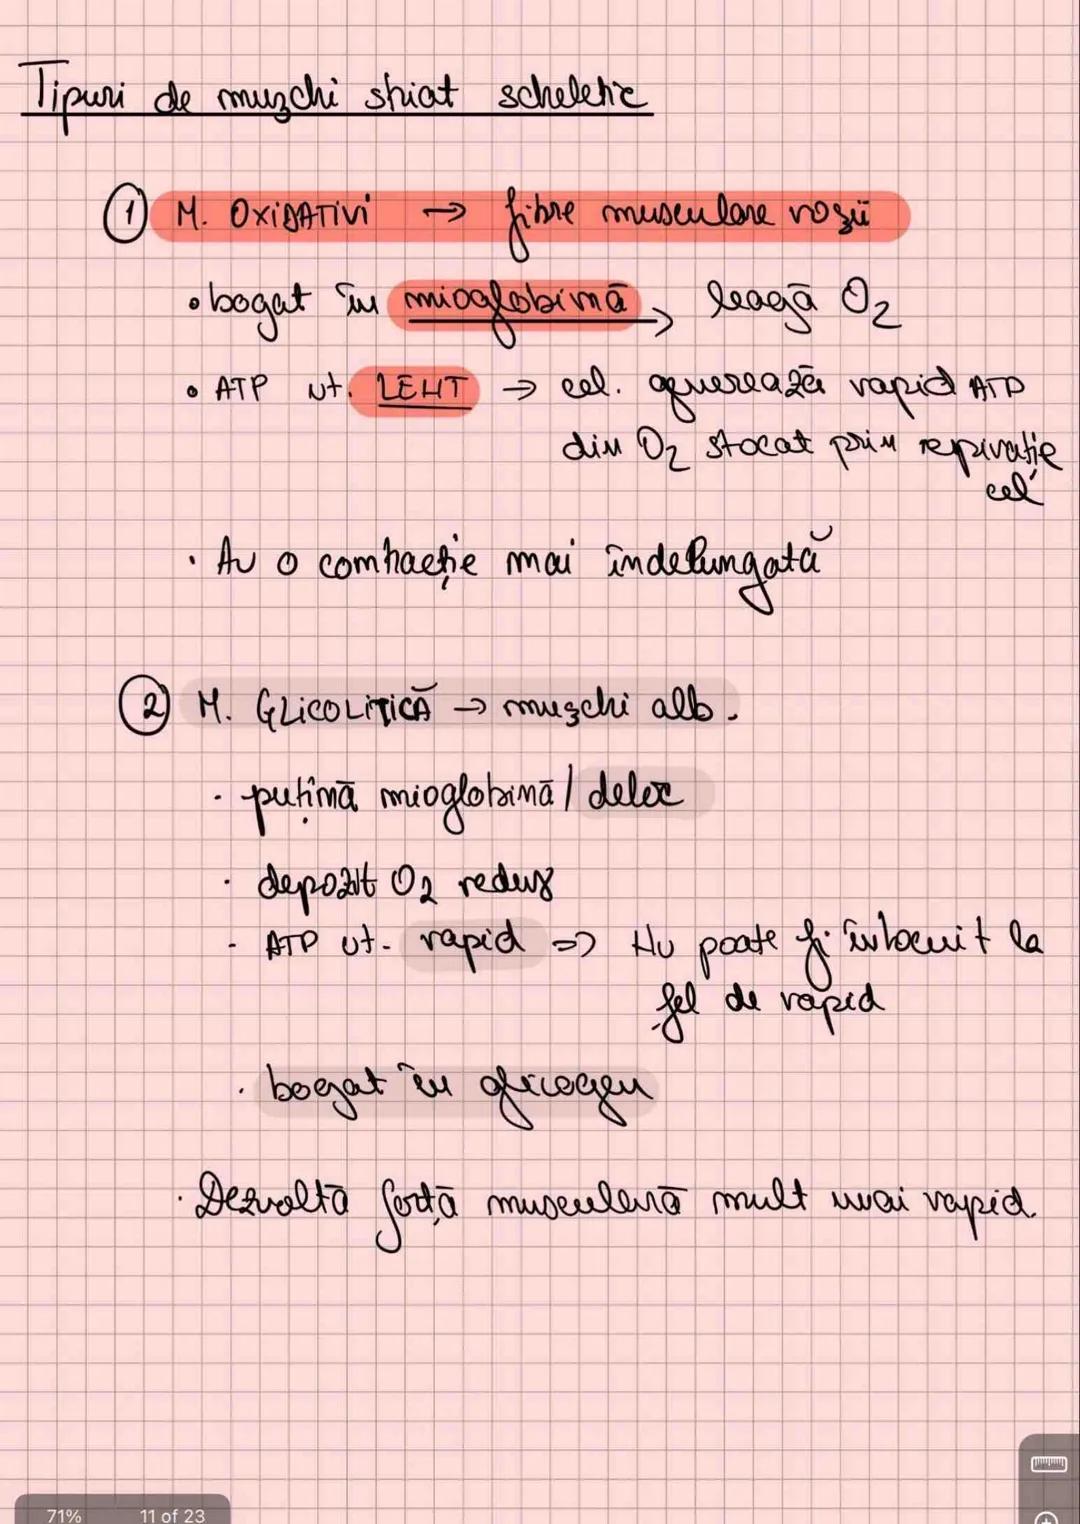 Tipuri de muzchi striat scheletic
1 M. OXIDATIVI → fibre musculare roșii
• bogat în mioglobină → leagă O2
• ATP ut. LENT → cel. generează rapid ATP
din O2 stocat prin repirație
cel
• Au o contracție mai îndelungată
2 M. GLICOLITICĂ → muschi alb.
• puțină mioglobină / deloc
• depozit O2 redus
• ATP ut. rapid => Nu poate fi înlocuit la
fel de rapid
• bogat în glicogen
• Dezvoltă forță musculară mult mai rapid.
71% 11 of 23